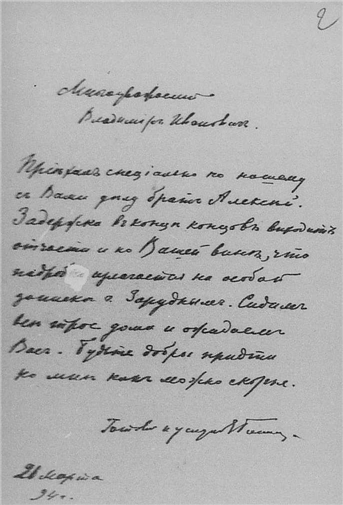 2
Многоуважаемый
Владимиръ Ивановичъ.
Пріѣхалъ спеціально по нашему
съ Вами дѣлу братъ Алексѣй.
Задержка въ концѣ концовъ выходитъ
отчасти и по Вашей винѣ, что
на особой
запискѣ г. Заруднымъ. Сидимъ
все трое дома и ожидаемъ
Васъ. Будьте добры придти
ко мнѣ какъ можно скорѣе.
Готовый къ услугамъ
26 марта
94 г.